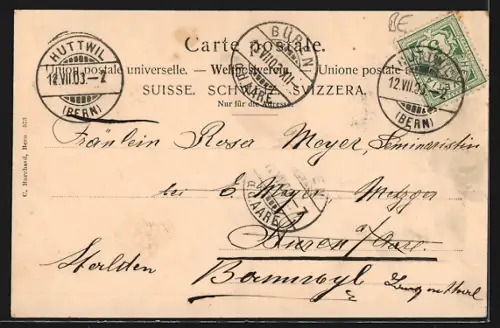 BE
Carte postale.
Union postale universelle. — Weltpostverein. — Unione postale
SUISSE. SCHWEIZ. SVIZZERA.
Nur für die Adresse.
HUTTWIL
12.VII.03.-2
(BERN)
BÜREN
VII.03
a/d AARE
HUTTWIL
12.VII.03
(BERN)
C. Burchard, Bern 853
Fräulein Rosa Meyer, Seminaristin
bei E. Meyer Metzger
a/d AARE
Büren a/Aare.
Bannwyl